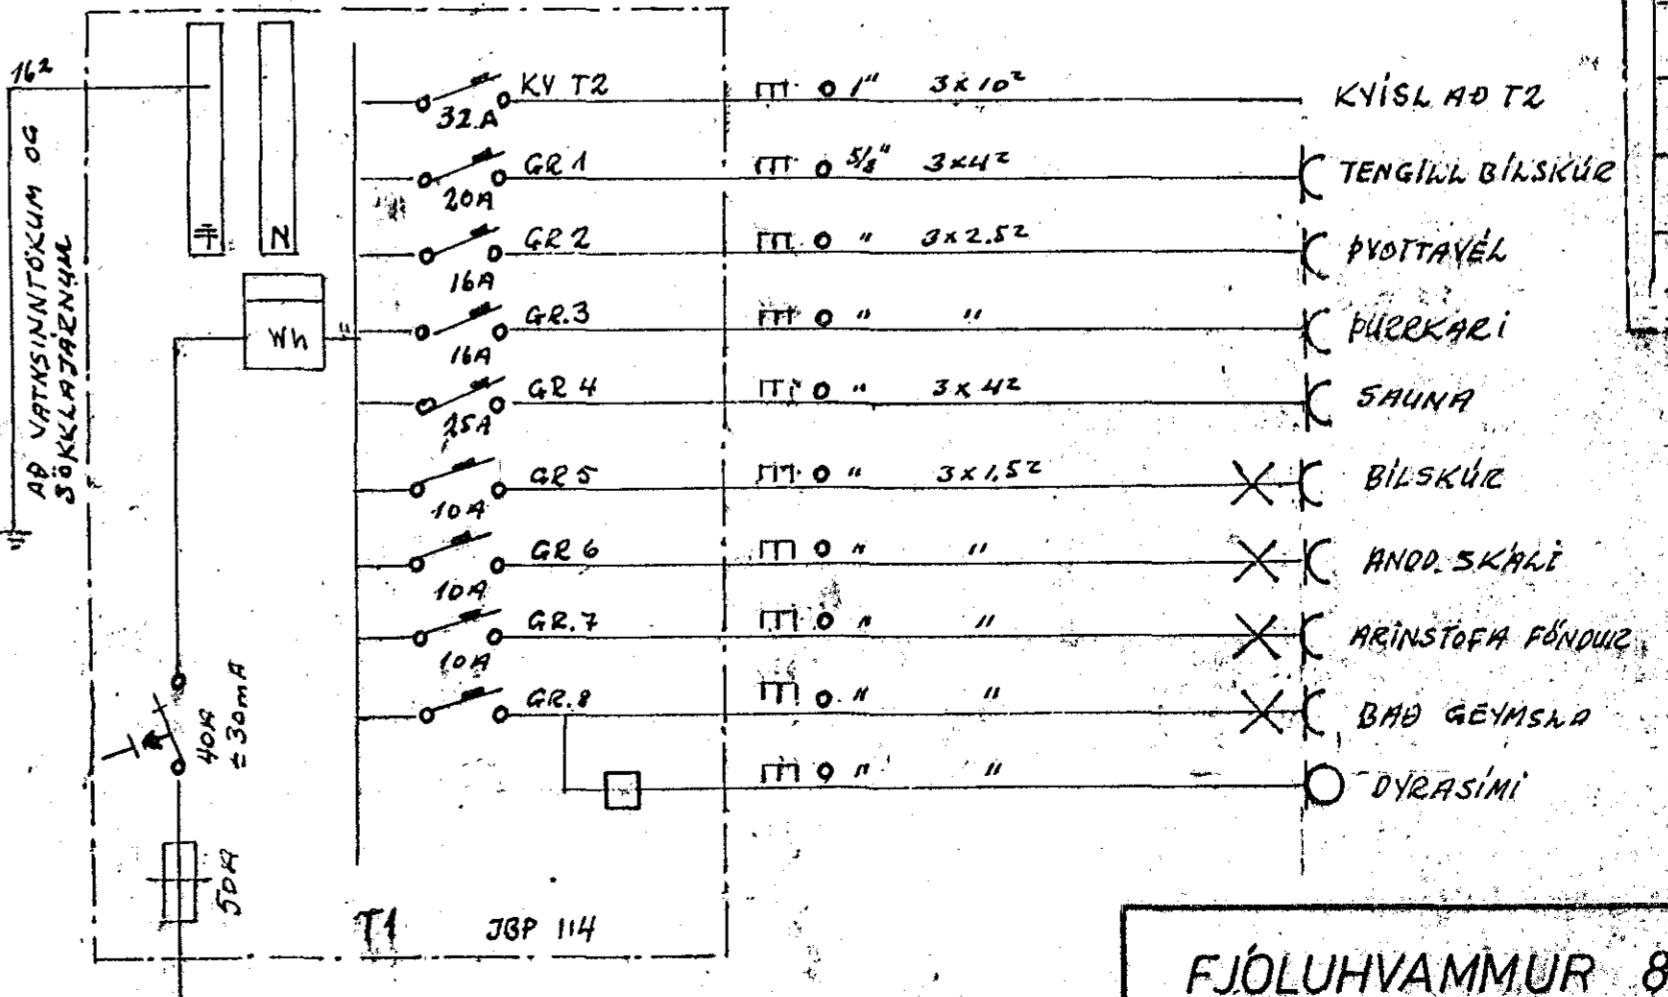 16²
AÐ VATNSINNTÖKUM OG
SÖKKLAJÁRNUM
N
Wh
40A
± 30mA
50A
KV T2 1" 3x10² KVÍSL AÐ T2
32A
GR 1 5/8" 3x4² TENGILL BÍLSKÚR
20A
GR 2 " 3x2.5² ÞVOTTAVÉL
16A
GR.3 " " ÞURRKARI
16A
GR 4 " 3x4² SAUNA
25A
GR 5 " 3x1.5² BÍLSKÚR
10A
GR 6 " " ANDD. SKÁLI
10A
GR.7 " " ARINSTOFA FÖNDUR
10A
GR.8 " " BAÐ GEYMSLA
" " DYRASÍMI
T1 JBP 114
FJÓLUHVAMMUR 8